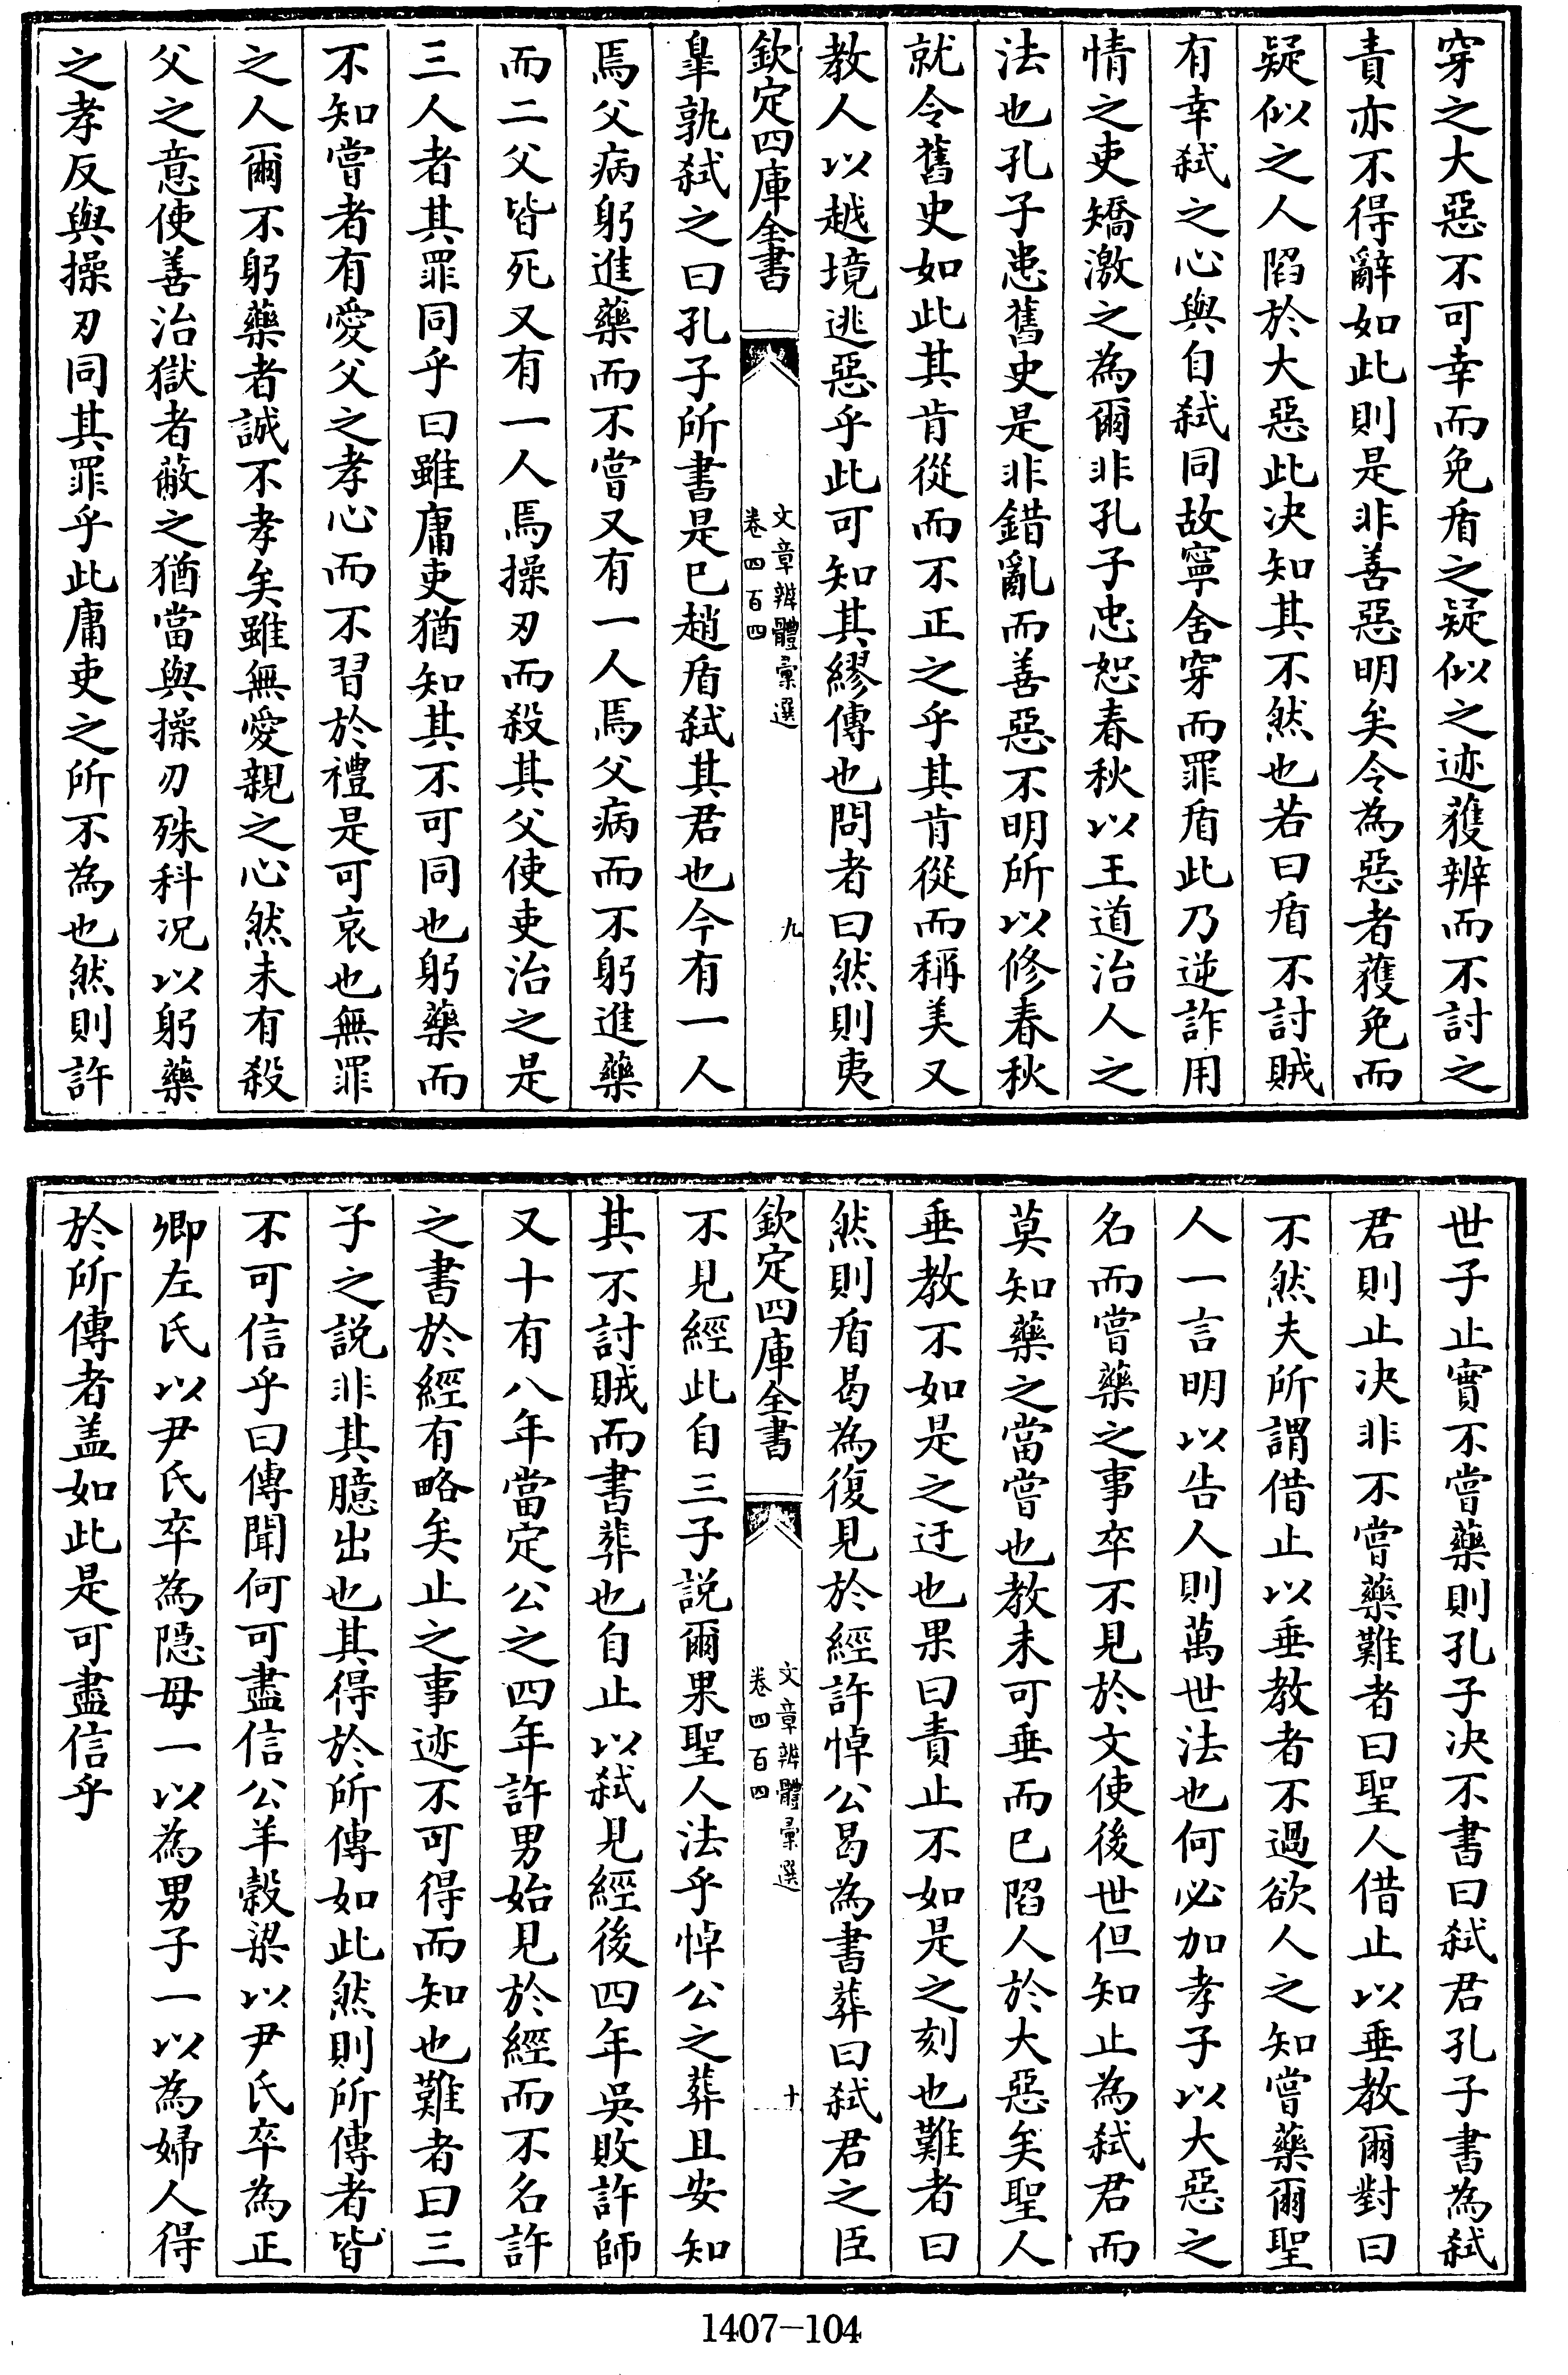 穿之大惡不可幸而免盾之疑似之迹獲辨而不討之
責亦不得辭如此則是非善惡明矣令為惡者獲免而
疑似之人陷於大惡此决知其不然也若曰盾不討賊
有幸弑之心與自弑同故寧舍穿而罪盾此乃逆詐用
情之吏矯激之為爾非孔子忠恕春秋以王道治人之
法也孔子患舊史是非錯亂而善惡不明所以修春秋
就令舊史如此其肯從而不正之乎其肯從而稱美又
教人以越境逃惡乎此可知其繆傳也問者曰然則夷
欽定四庫全書
文章辨體彙選
卷四百四
九
臯孰弑之曰孔子所書是已趙盾弑其君也今有一人
焉父病躬進藥而不嘗又有一人焉父病而不躬進藥
而二父皆死又有一人焉操刃而殺其父使吏治之是
三人者其罪同乎曰雖庸吏猶知其不可同也躬藥而
不知嘗者有愛父之孝心而不習於禮是可哀也無罪
之人爾不躬藥者誠不孝矣雖無愛親之心然未有殺
父之意使善治獄者蔽之猶當與操刃殊科况以躬藥
之孝反與操刃同其罪乎此庸吏之所不為也然則許
世子止實不嘗藥則孔子决不書曰弑君孔子書為弑
君則止决非不嘗藥難者曰聖人借止以垂教爾對曰
不然夫所謂借止以垂教者不過欲人之知嘗藥爾聖
人一言明以告人則萬世法也何必加孝子以大惡之
名而嘗藥之事卒不見於文使後世但知止為弑君而
莫知藥之當嘗也教未可垂而已陷人於大惡矣聖人
垂教不如是之迂也果曰責止不如是之刻也難者曰
然則盾曷為復見於經許悼公曷為書葬曰弑君之臣
欽定四庫全書
文章辨體彙選
卷四百四
十
不見經此自三子說爾果聖人法乎悼公之葬且安知
其不討賊而書葬也自止以弑見經後四年吳敗許師
又十有八年當定公之四年許男始見於經而不名許
之書於經有略矣止之事迹不可得而知也難者曰三
子之說非其臆出也其得於所傳如此然則所傳者皆
不可信乎曰傳聞何可盡信公羊穀梁以尹氏卒為正
卿左氏以尹氏卒為隠母一以為男子一以為婦人得
於所傳者盖如此是可盡信乎
1407-104